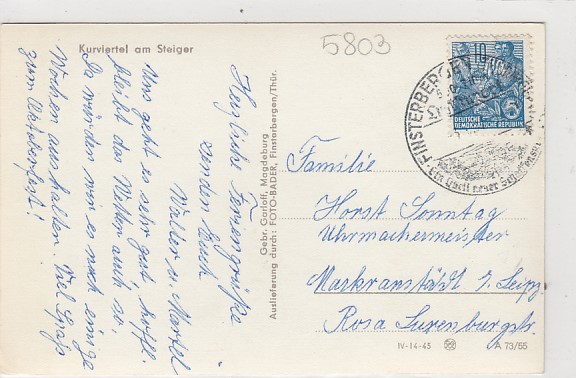 Kurviertel am Steiger
5803
Herzliche Feriengrüße
senden Euch
Walter u. Martel
Uns geht es sehr gut hoffl.
bleibt das Wetter auch so.
Da würden wir es noch einige
Wochen aushalten. Viel Spaß
zum Watefest!
Gebr. Garloff, Magdeburg
Auslieferung durch: FOTO-BADER, Finsterbergen/Thür.
10
DEUTSCHE
DEMOKRATISCHE REPUBLIK
5
FINSTERBERGEN
Ein Quell neuer Schaffens
Familie
Horst Sonntag
Uhrmachermeister
Markranstädt b. Leipz.
Rosa Luxenburgstr.
IV-14-45
A 73/55